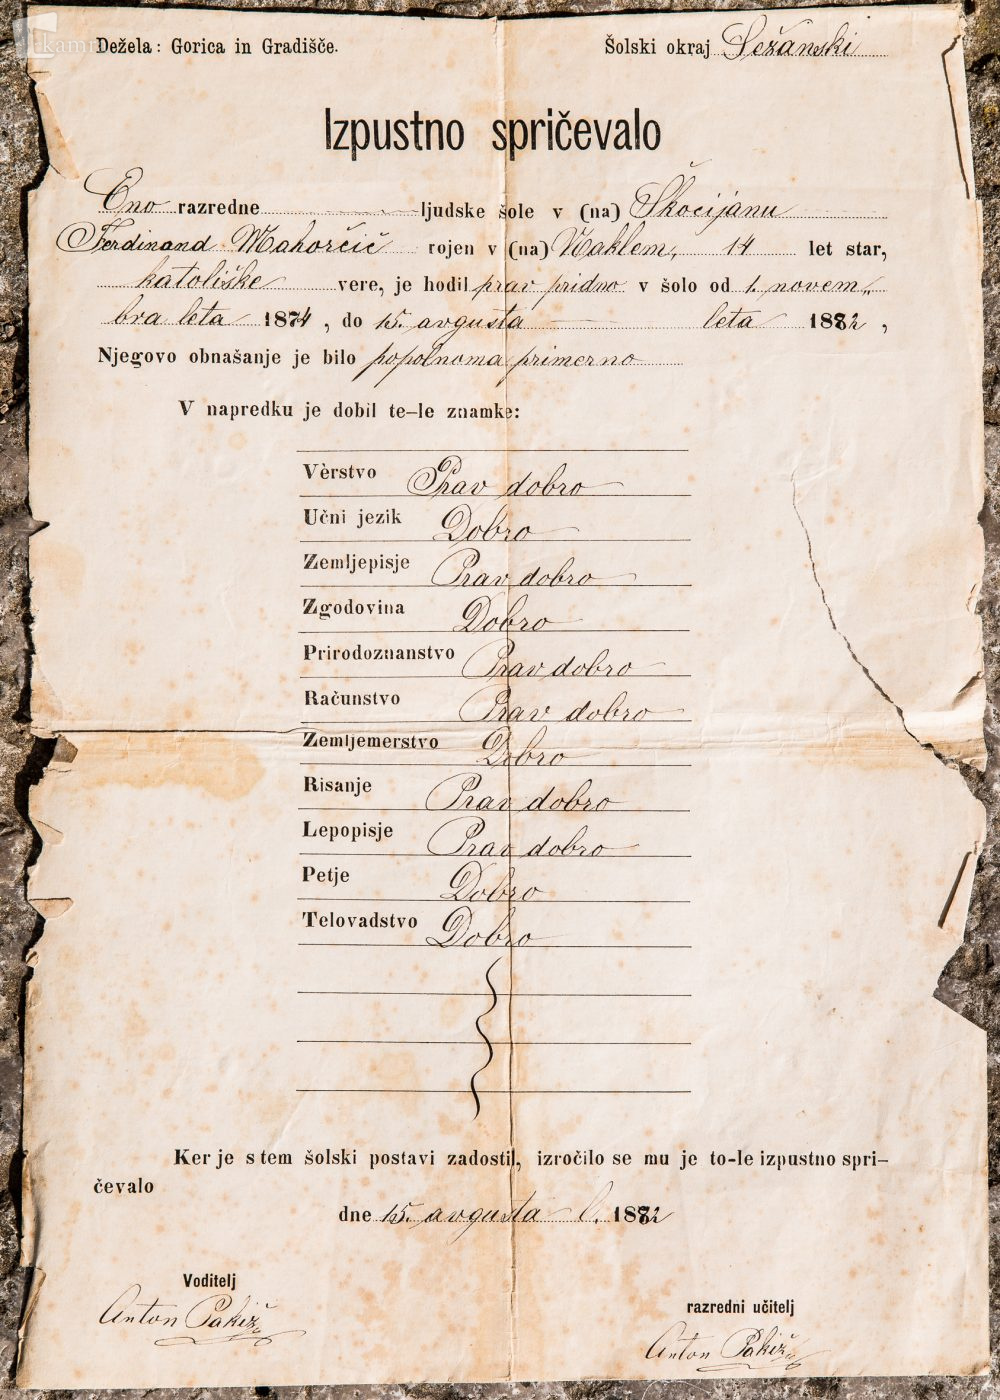 kamra
Dežela: Gorica in Gradišče. Šolski okraj Sežanski
Izpustno spričevalo
Eno razredne ljudske šole v (na) Škocijanu
Ferdinand Mahorčič rojen v (na) Naklem, 14 let star,
katoliške vere, je hodil prav pridno v šolo od 1. novem„
bra leta 1874, do 15. avgusta leta 1882,
Njegovo obnašanje je bilo popolnoma primerno
V napredku je dobil te-le znamke:
Vèrstvo Prav dobro
Učni jezik Dobro
Zemljepisje Prav dobro
Zgodovina Dobro
Prirodoznanstvo Prav dobro
Računstvo Prav dobro
Zemljemerstvo Dobro
Risanje Prav dobro
Lepopisje Prav dobro
Petje Dobro
Telovadstvo Dobro
Ker je s tem šolski postavi zadostil, izročilo se mu je to-le izpustno spri-
čevalo
dne 15. avgusta l. 1882
Voditelj
Anton Pakiž
razredni učitelj
Anton Pakiž